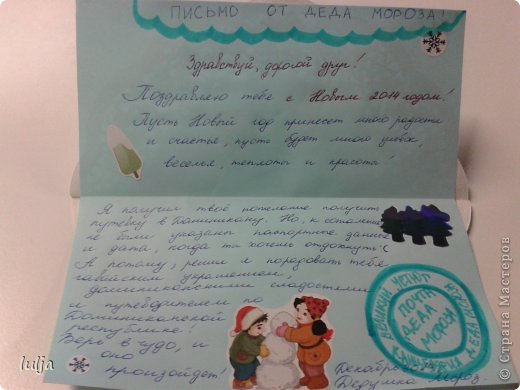 ПИСЬМО ОТ ДЕДА МОРОЗА!
Здравствуй, дорогой друг!
Поздравляю тебя с Новым 2014 годом!
Пусть Новый год принесет много радости
и счастья, пусть будет много улыбок,
веселья, теплоты и красоты!
Я получил твоё пожелание получить
путевку в Доминикану. Но, к сожалению
не были указаны паспортные данные
и дата, когда ты хочешь отдохнуть :(
А потому, решил я порадовать тебя
гавайским украшением,
доминиканскими сладостями
и путеводителем по
Доминиканской
республике!
Верь в чудо, и
оно
произойдет!
ПОЧТА
ДЕДА
МОРОЗА
ВЕЛИКИЙ УСТЮГ
КАНЦЕЛЯРИЯ ДЕДА МОРОЗА
Дедушка Мороз
lulja
© Страна Мастеров